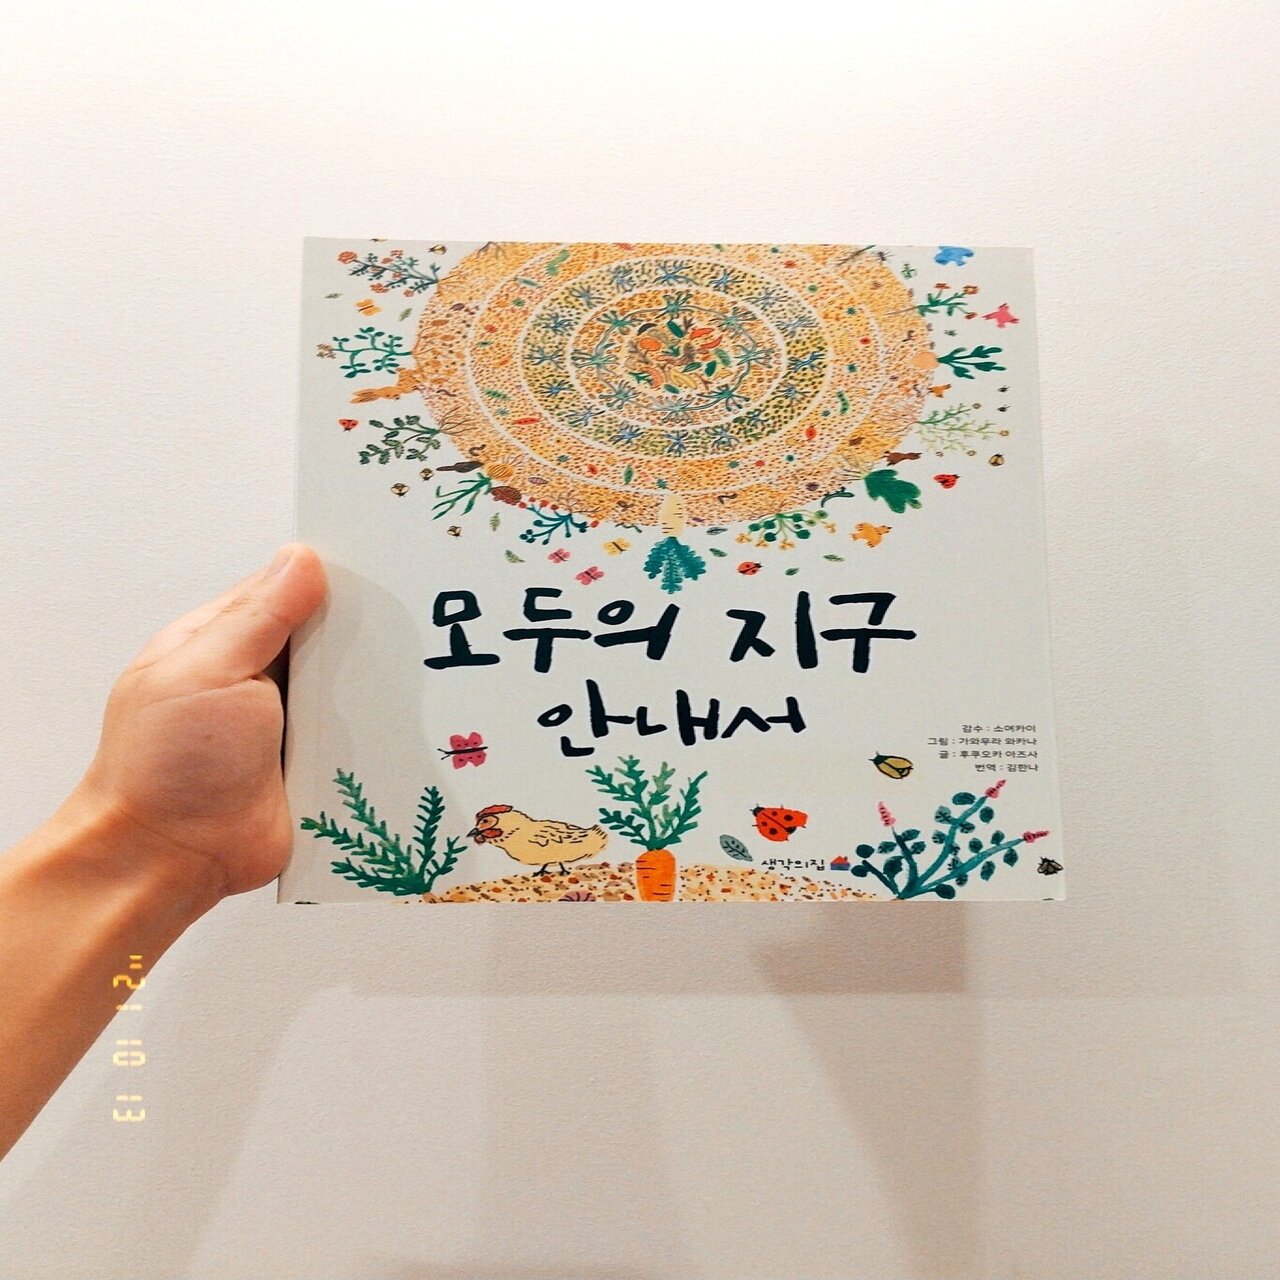 모두의 지구
안내서
감수 : 소여카이
그림 : 가와무라 와카나
글 : 후쿠오카 아즈사
번역 : 김한나
생각의집
'21 10 13